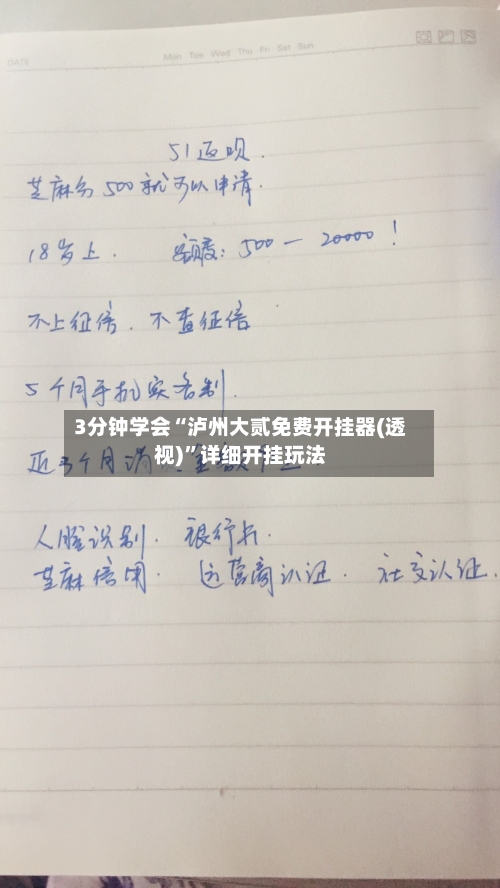 DATE
Mon Tue Wed Thu Fri Sat Sun
51返呗.
芝麻分500就可以申请.
18岁上. 额度: 500一20000!
不上征信. 不查征信
5个月手机实名制.
3分钟学会“泸州大贰免费开挂器(透
视)”详细开挂玩法
近3个月
人脸识别. 银行卡.
芝麻信用. 运营商认证. 社交认证.